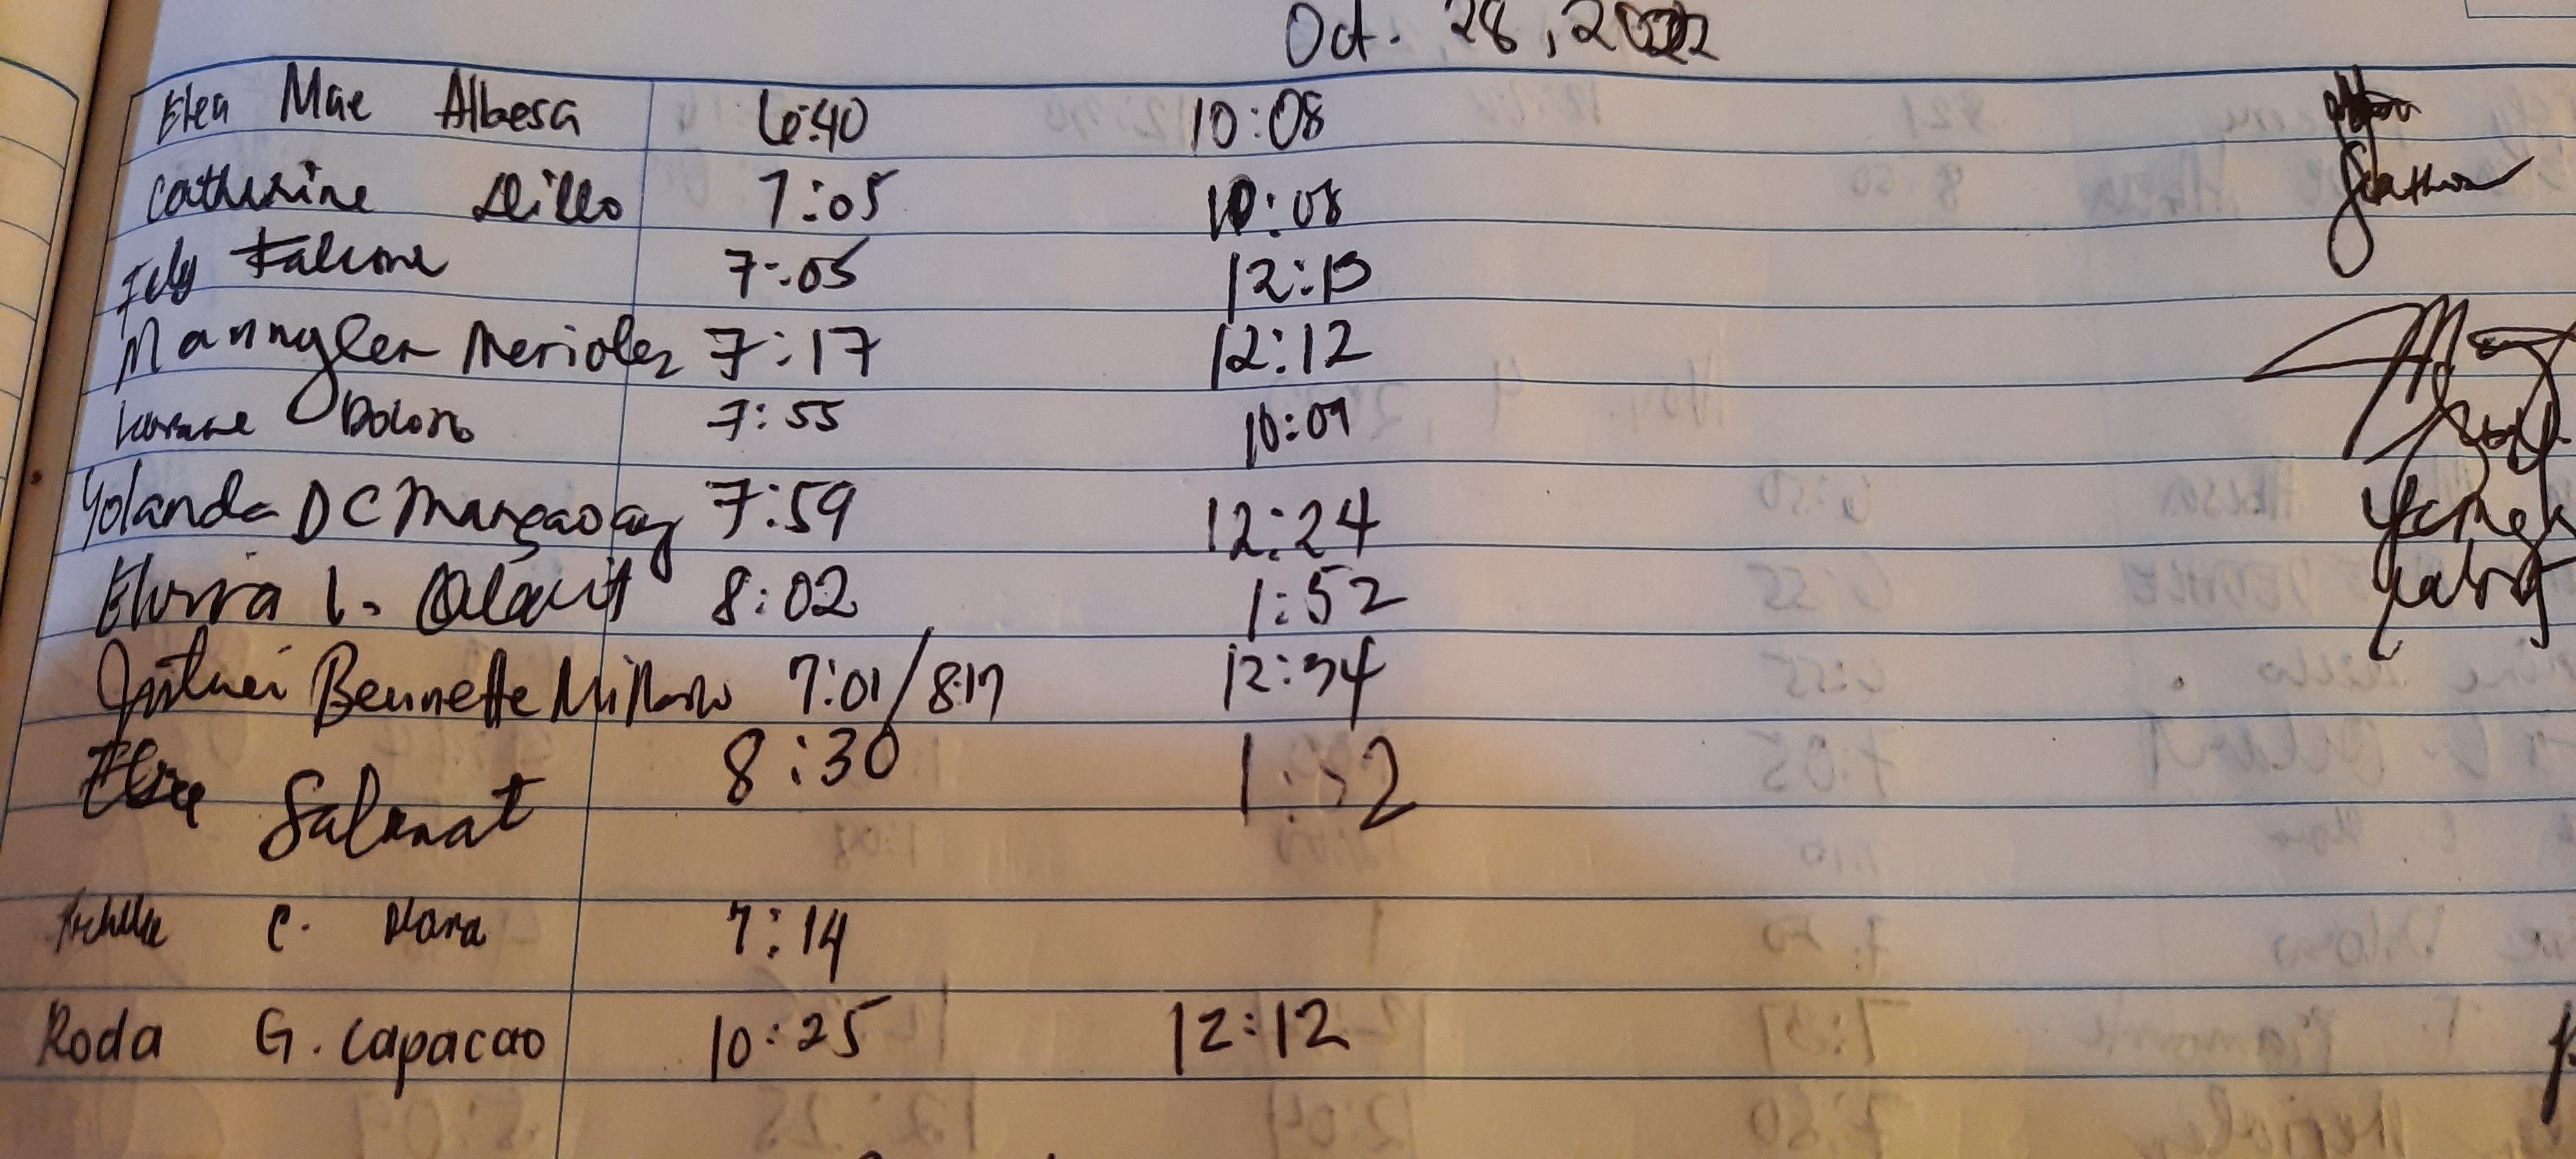 Oct. 28, 2022
Elea Mae Albesa 6:40 10:08
Catherine Dillo 7:05 10:08
Fely Falcone 7:05 12:13
Mannylen Merioles 7:17 12:12
Doloso 7:55 10:09
Yolanda DC Mangaoay 7:59 12:24
Elvira L. 8:02 1:52
Bennette 7:01/8:17 12:34
Salamat 8:30 1:52
C. 7:14
Roda G. Capacao 10:25 12:12